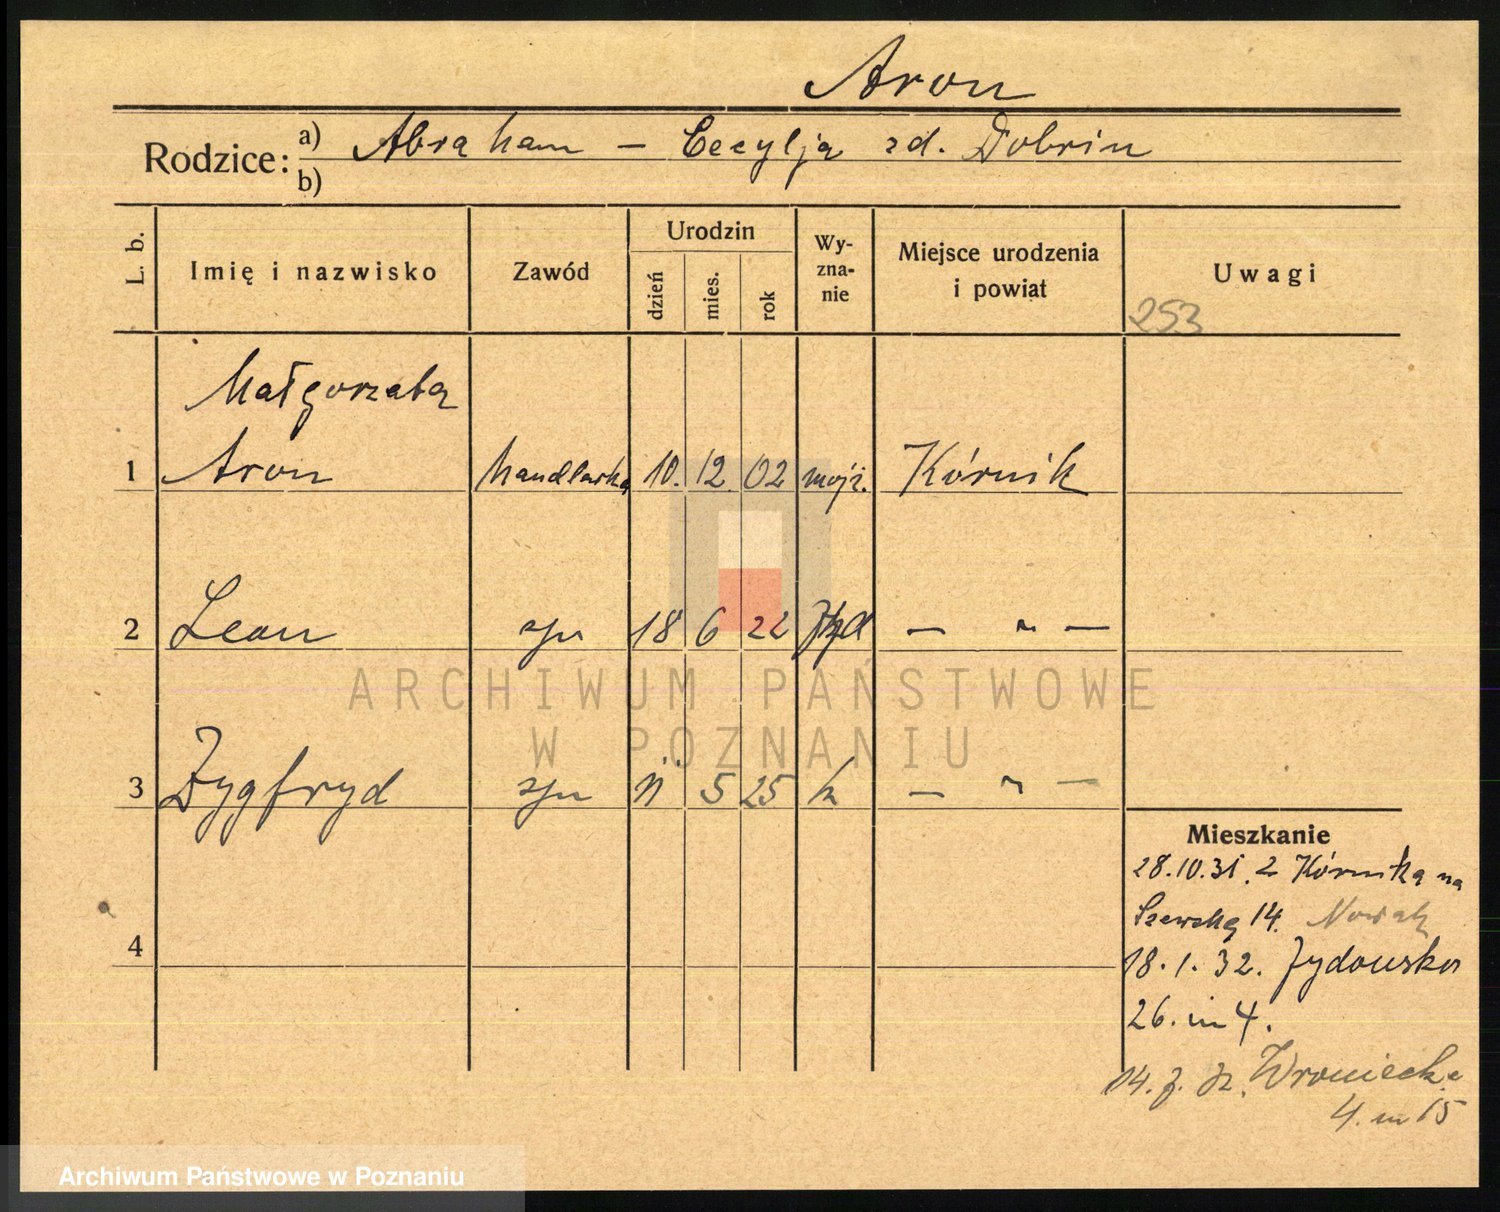 Aron
Rodzice: a) Abraham – Cecylja zd. Dobrin
b)
L. b. Imię i nazwisko Zawód Urodzin dzień mies. rok Wy-zna-nie Miejsce urodzenia i powiat Uwagi
253
Małgorzata
1 Aron handlarka 10. 12. 02 mojż. Kórnik
2 Leon syn 18 6 22 – " –
3 Zygfryd syn 11 5 25 – " –
Mieszkanie
28.10.31. z Kórnika na
Szewską 14. Nowak
4
18.1.32. Żydowska
26. m 4.
14. Wroniecka
4. m 15
ARCHIWUM PAŃSTWOWE
W POZNANIU
Archiwum Państwowe w Poznaniu